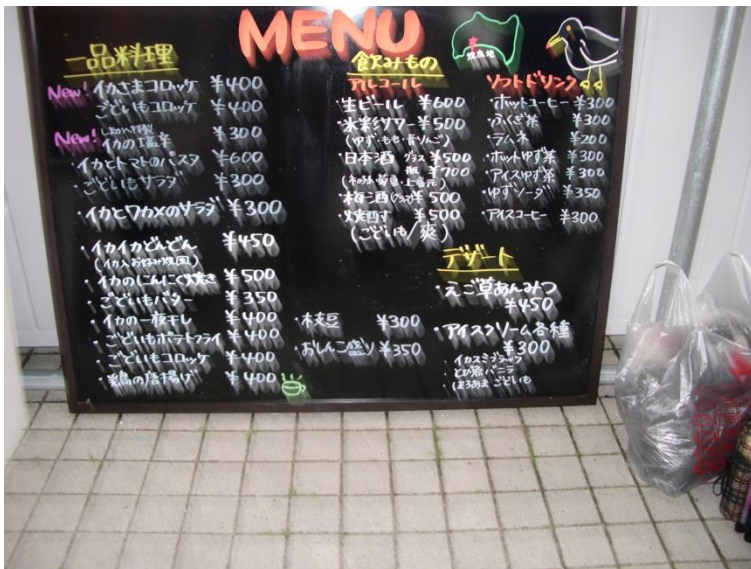 MENU
一品料理
New! イカさまコロッケ ¥400
ごどいもコロッケ ¥400
New!
イカの塩辛 ¥300
イカとトマトのパスタ ¥600
・ごどいもサラダ ¥300
・イカとワカメのサラダ ¥300
・イカイカどんどん ¥450
(イカ入お好み焼風)
・イカのにんにく焼き ¥500
・ごどいもバター ¥350
・イカの一夜干し ¥400
・ごどいもポテトフライ ¥400
・ごどいもコロッケ ¥400
・鶏の唐揚げ ¥400
・枝豆 ¥300
・おしんこ盛り ¥350
飲みもの
アルコール
・生ビール ¥600
・氷彩サワー ¥500
(ゆず・もも・青りんご)
・日本酒 グラス ¥500
瓶 ¥700
・梅酒 ¥500
・焼酎 ¥500
(ごどいも/爽)
ソフトドリンク
・ホットコーヒー ¥300
・ふくぎ茶 ¥300
・ラムネ ¥200
・ホットゆず茶 ¥300
・アイスゆず茶 ¥300
・ゆずソーダ ¥350
・アイスコーヒー ¥300
デザート
・えご草あんみつ
¥450
・アイスクリーム各種
¥300
イカスミブラック
とび魚バニラ
ほろあまごどいも